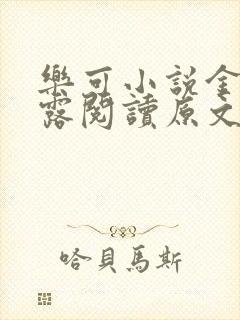 樂可小說金
露閱讀原文
哈貝馬斯